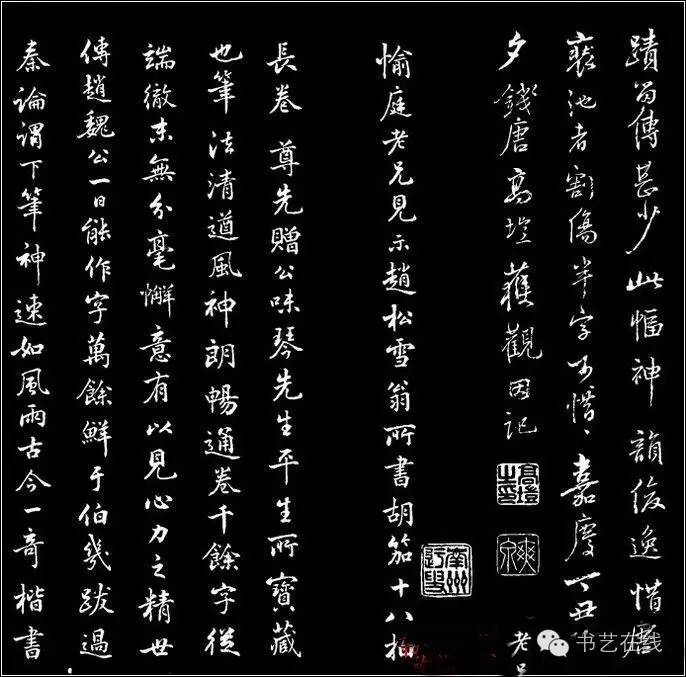 蹟留傳甚少此幅神韻俊逸惜爲
裝池者割傷半字可惜惜嘉慶丁丑
夕錢唐高塏獲觀因記
愉庭老兄見示趙松雪翁所書胡笳十八拍
長卷 尊先贈公味琴先生平生所寶藏
也筆法清遒風神朗暢通卷千餘字從
端徹末無分毫懈意有以見心力之精世
傳趙魏公一日能作字萬餘鮮于伯幾跋過
秦論謂下筆神速如風雨古今一奇楷書
高塏之印
爽泉
老兄
书艺在线